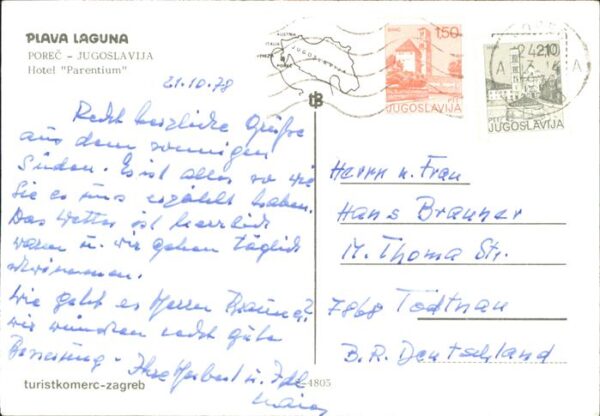 PLAVA LAGUNA
POREČ - JUGOSLAVIJA
Hotel "Parentium"
21.10.78
Recht herzliche Grüße
aus dem sonnigen
Süden. Es ist alles so wie
Sie es uns erzählt haben.
Das Wetter ist herrlich
warm u. wir gehen täglich
schwimmen.
Wie geht es Herrn
wir wünschen recht gute
Besserung - Ihre Herbert u.
turistkomerc-zagreb
AUSTRIA
ITALIA
JUGOSLAVIJA
POREČ
1,50
JUGOSLAVIJA
2,10
JUGOSLAVIJA
A
A
Herrn u. Frau
Hans Brauner
M. Thoma Str.
7868 Todtnau
B.R. Deutschland
4805